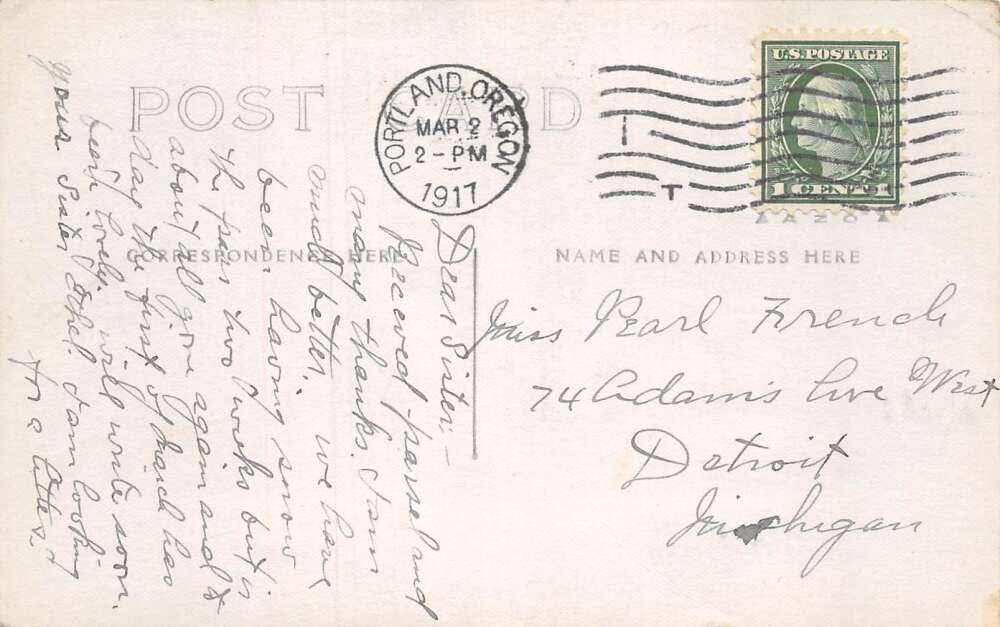 POST CARD
PORTLAND, OREGON
MAR 2
2 - PM
1917
U.S. POSTAGE
1 CENT 1
AZO
CORRESPONDENCE HERE
NAME AND ADDRESS HERE
Dear Sister, -
Received parsel and
many thanks. I am
much better. we have
been having snow
the pass two weeks but is
about all gone again and
day the first of March has
been lovely. will write soon.
your Sister Ethel. I am looking
for a letter
Miss Pearl French
74 Adams Ave West
Detroit
Michigan